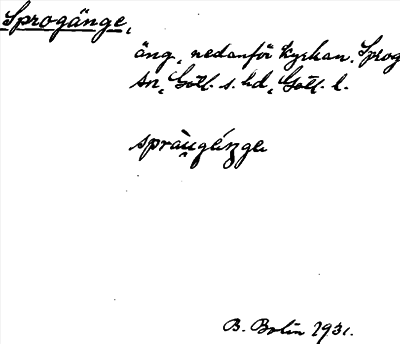 Sprogänge,
äng, nedanför kyrkan. Sprog
sn, Gotl. s. hd, Gotl. l.
sprau̯génge
B. Bolin 1931.